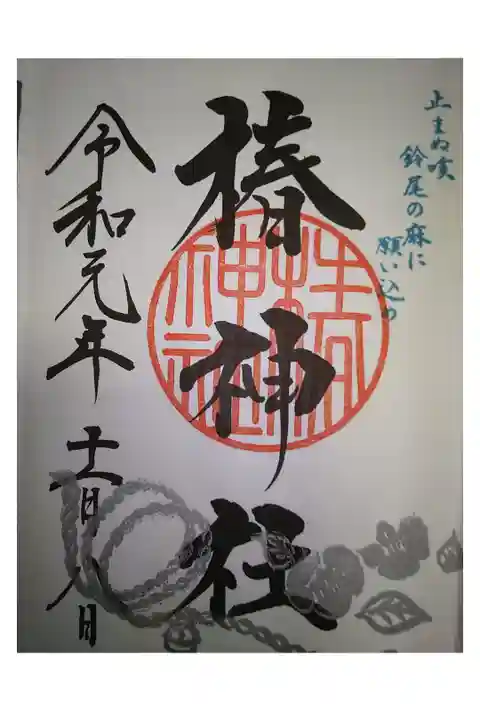 止まぬ咳
鈴尾の麻に
願い込め
椿神社
令和元年 十一月八日